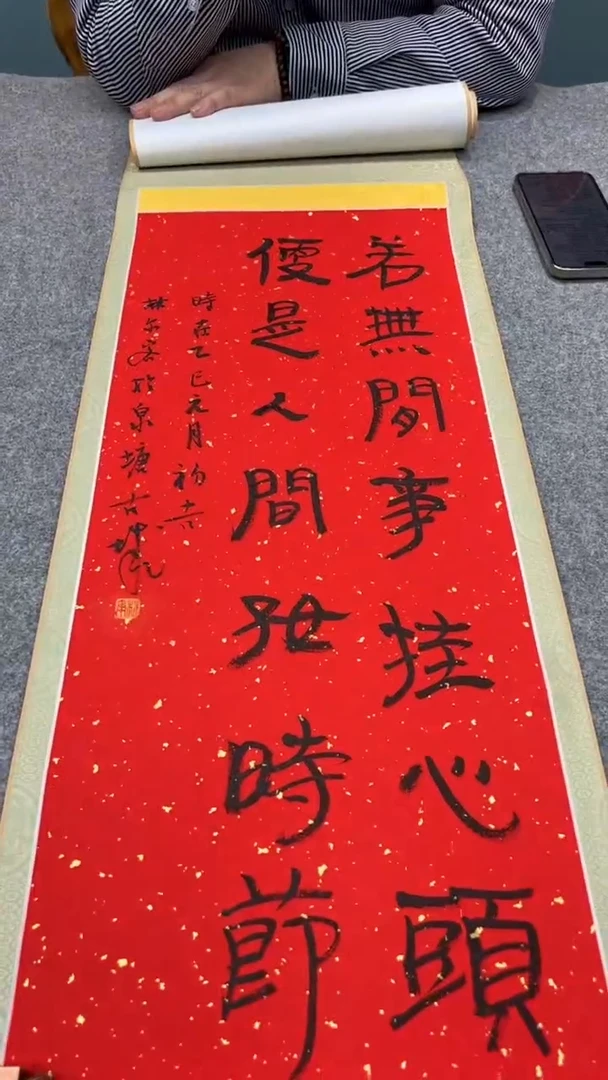 若無閒事挂心頭
便是人間好時節
時在乙巳元月初吉
於泉塘古